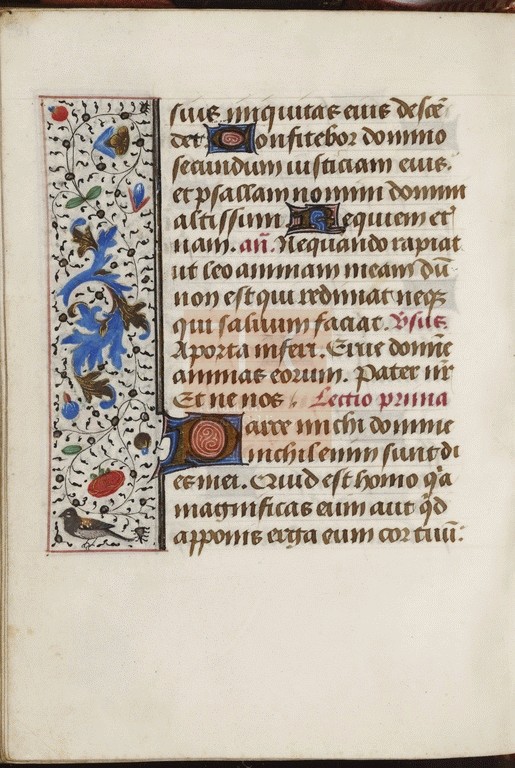 suus iniquitas eius descē
det. Confitebor domino
secundum iusticiam eius.
et psallam nomini domini
altissimi. Requiem et
nam. añ. Nequando rapiat
ut leo animam meam dū
non est qui redimat neq
qui saluum faciat. Vsus.
A porta inferi. Erue domine
animas eorum. Pater nr̄
Et ne nos. Lectio prima
Parce michi domine
nichil enim sunt di
es mei. Quid est homo q̄a
magnificas eum aut q̄d
apponis erga eum cor tuū: